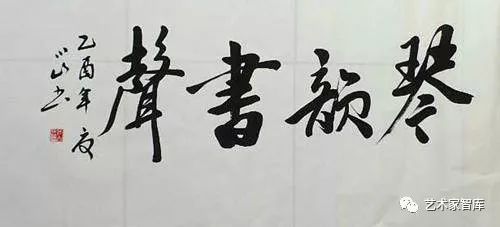 琴韵書聲
乙酉年夏
山书
艺术家智库